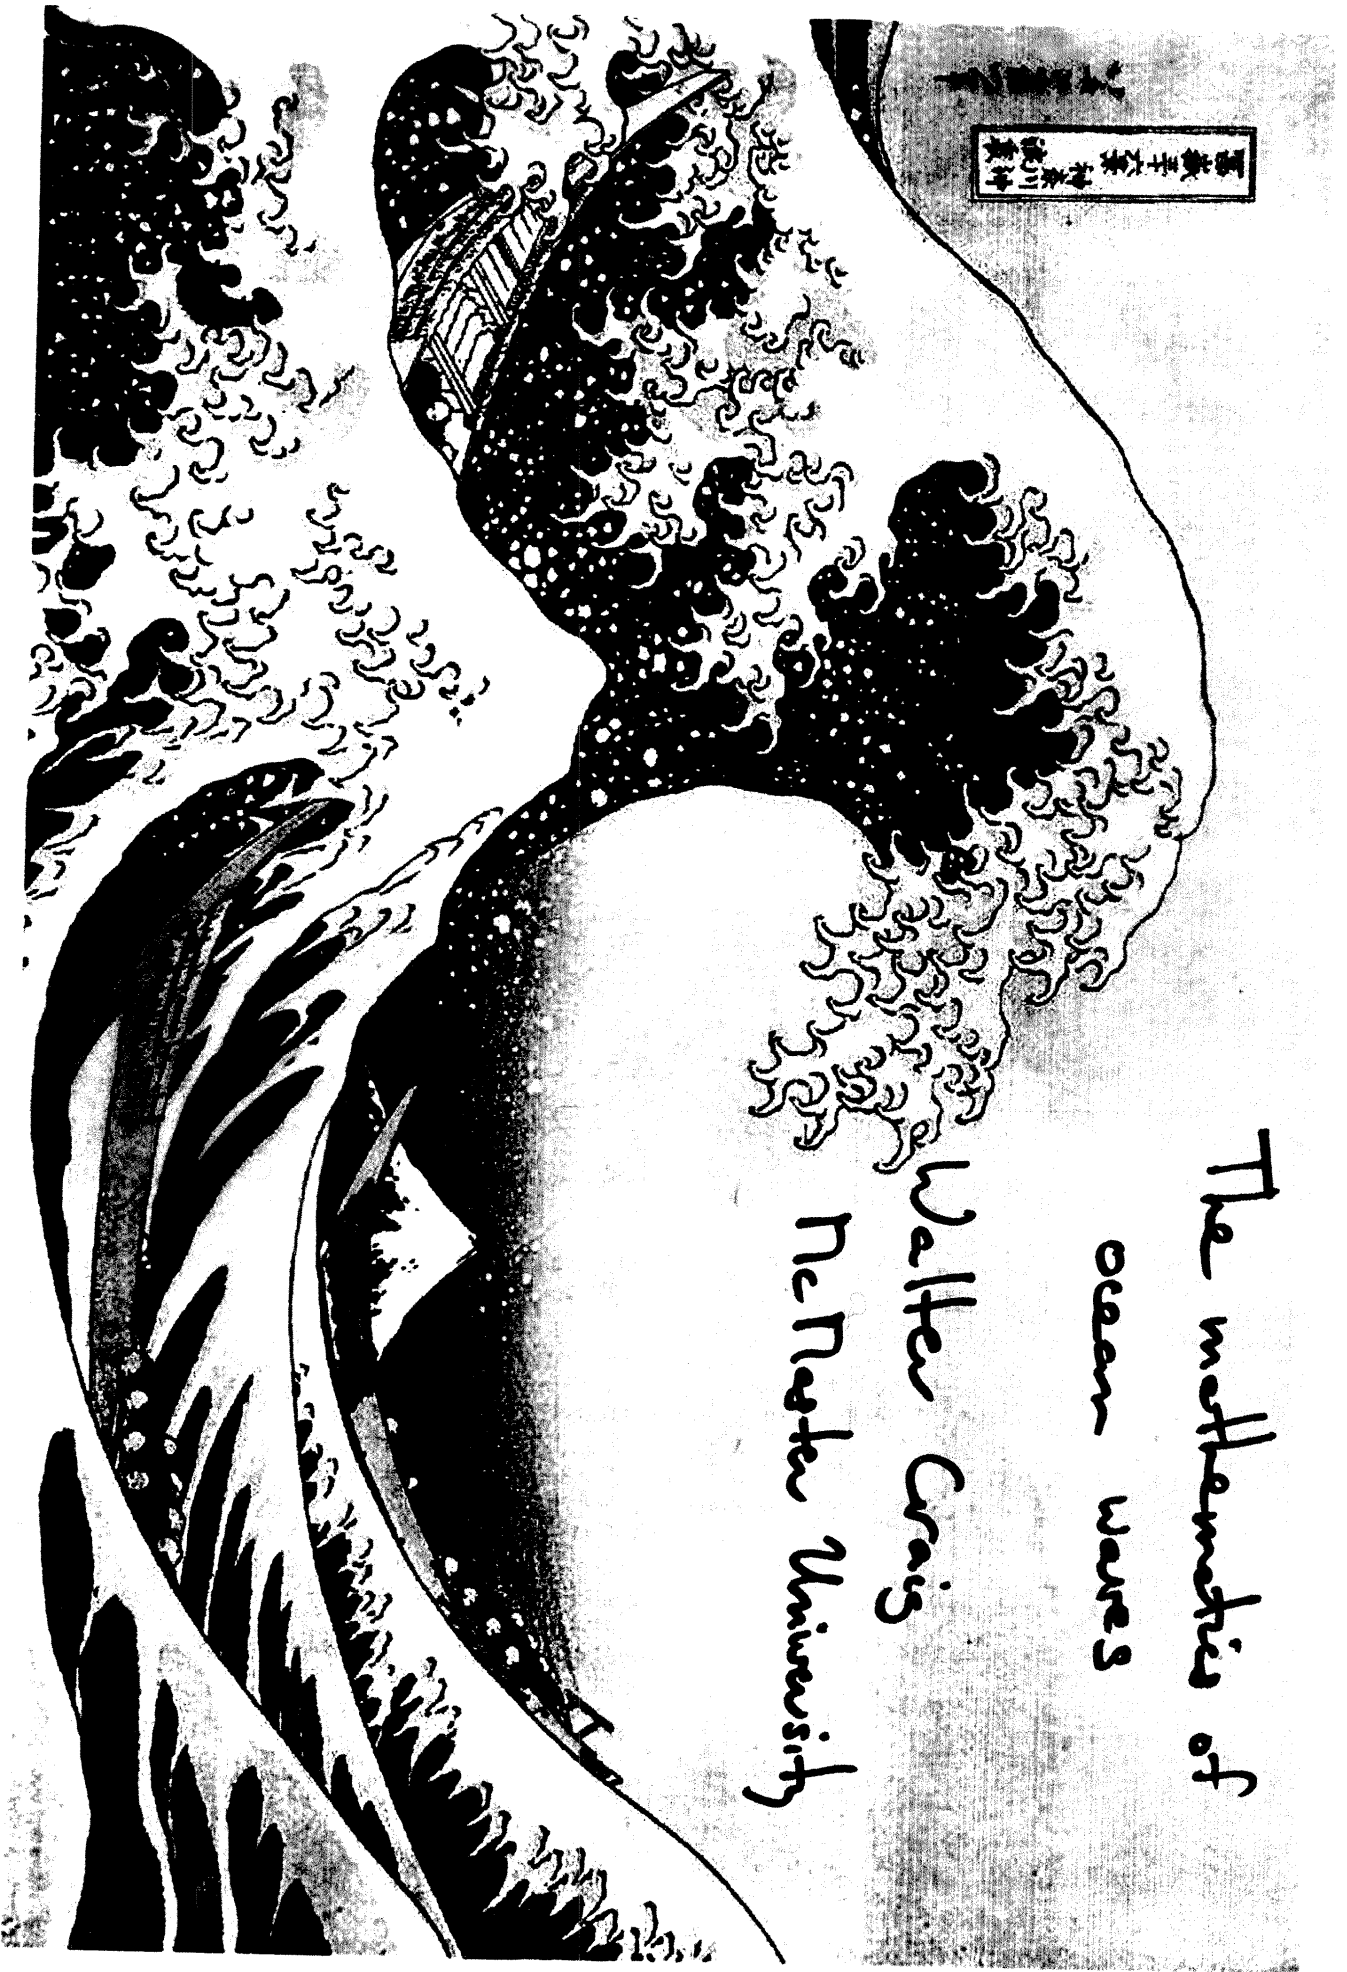 The mathematics of
ocean waves
Walter Craig
McMaster University
冨嶽三十六景
神奈川
沖
浪裏